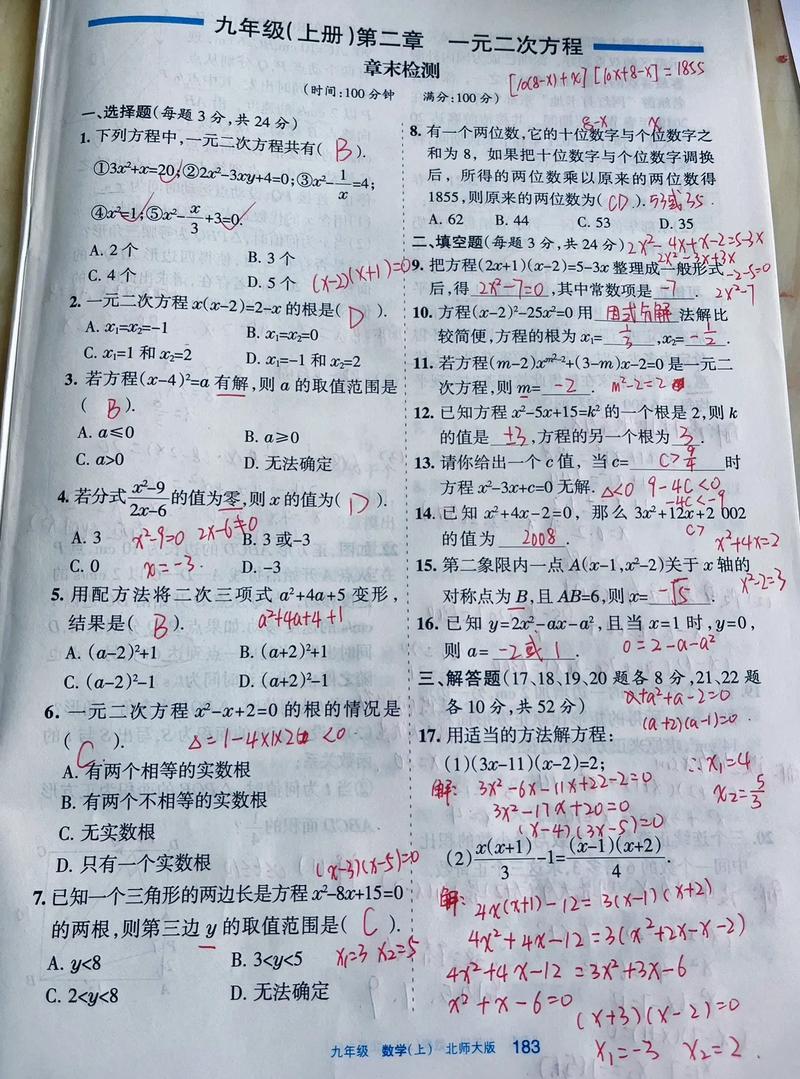 九年级(上册)第二章 一元二次方程
章末检测
(时间:100分钟 满分:100分)
[10(8-x)+x][10x+8-x]=1855
一、选择题(每题3分,共24分)
1. 下列方程中,一元二次方程共有( B ).
①3x²+x=20;②2x²-3xy+4=0;③x²-1/x=4;
④x²=1;⑤x²-x/3+3=0.
A. 2个 B. 3个
C. 4个 D. 5个
(x-2)(x+1)=0
2. 一元二次方程x(x-2)=2-x的根是( D ).
A. x₁=x₂=-1 B. x₁=x₂=0
C. x₁=1和x₂=2 D. x₁=-1和x₂=2
3. 若方程(x-4)²=a有解,则a的取值范围是
( B ).
A. a≤0 B. a≥0
C. a>0 D. 无法确定
4. 若分式x²-9/2x-6的值为零,则x的值为( D ).
A. 3 B. 3或-3
x²-9=0 2x-6≠0
C. 0 D. -3
x=-3.
5. 用配方法将二次三项式a²+4a+5变形,
结果是( B ).
a²+4a+4+1
A. (a-2)²+1 B. (a+2)²+1
C. (a-2)²-1 D. (a+2)²-1
6. 一元二次方程x²-x+2=0的根的情况是
( C ).
Δ=1-4×1×2<0
A. 有两个相等的实数根
B. 有两个不相等的实数根
C. 无实数根
D. 只有一个实数根
(x-3)(x-5)=0
7. 已知一个三角形的两边长是方程x²-8x+15=0
的两根,则第三边y的取值范围是( C ).
x₁=3 x₂=5
A. y<8 B. 3<y<5
C. 2<y<8 D. 无法确定
8-x x
8. 有一个两位数,它的十位数字与个位数字之
和为8,如果把十位数字与个位数字调换
后,所得的两位数乘以原来的两位数得
1855,则原来的两位数为( CD ).
53或35.
A. 62 B. 44 C. 53 D. 35
二、填空题(每题3分,共24分)
2x²-4x+x-2=5-3x
2x²-3x+3x
-2-5=0
2x²-7
9. 把方程(2x+1)(x-2)=5-3x整理成一般形式
后,得 2x²-7=0 ,其中常数项是 -7 .
10. 方程(x-2)²-25x²=0用 因式分解 法解比
较简便,方程的根为x₁= 1/3 ,x₂= -1/2 .
11. 若方程(m-2)xᵐ²⁻²+(3-m)x-2=0是一元二
次方程,则m= -2 .
m²-2=2
12. 已知方程x²-5x+15=k²的一个根是2,则k
的值是 ±3 ,方程的另一个根为 3 .
13. 请你给出一个c值,当c= c>9/4 时
方程x²-3x+c=0无解.
Δ<0 9-4c<0
-4c<-9
c>
14. 已知x²+4x-2=0,那么3x²+12x+2 002
的值为 2008 .
x²+4x=2
15. 第二象限内一点A(x-1,x²-2)关于x轴的
对称点为B,且AB=6,则x= -√5 .
x²-2=3
16. 已知y=2x²-ax-a²,且当x=1时,y=0,
则a= -2或1 .
0=2-a-a²
a²+a-2=0
(a+2)(a-1)=0.
三、解答题(17、18、19、20题各8分,21、22题
各10分,共52分)
17. 用适当的方法解方程:
(1)(3x-11)(x-2)=2;
解: 3x²-6x-11x+22-2=0
3x²-17x+20=0
(x-4)(3x-5)=0
∴x₁=4
x₂=5/3
(2)x(x+1)/3-1=(x-1)(x+2)/4.
解: 4x(x+1)-12=3(x-1)(x+2)
4x²+4x-12=3(x²+2x-x-2)
4x²+4x-12=3x²+3x-6
x²+x-6=0
(x+3)(x-2)=0
x₁=-3 x₂=2
九年级 数学(上) 北师大版 183